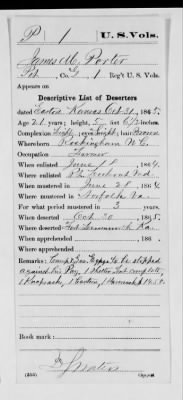 P | 1 | U.S. Vols.
James M. Porter
Pvt, Co. G, 1 Reg't U.S. Vols.
Appears on
Descriptive List of Deserters
dated Easton Kansas Oct 31, 1865.
Age 21 years; height 5 feet 6 1/2 inches.
Complexion ; eyes ; hair Brown
Where born Rockingham N.C.
Occupation Farmer
When enlisted June 18, 1864
Where enlisted Pt. Lookout Md.
When mustered in June 28, 1864
Where mustered in Norfolk Va.
For what period mustered in 3 years.
When deserted Oct 30, 1865.
Where deserted Fort Ka.
When apprehended , 186 .
Where apprehended
Remarks: Camp & Gar. Eqpge to be stopped
against his Pay, 1 Shelter Tent complete,
1 Knapsack, 1 Canteen, 1 Haversack
Book mark:
(383) Copyist.